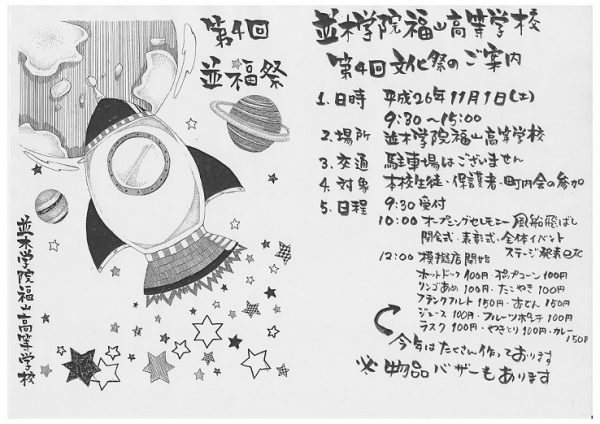 第4回
並福祭
並木学院福山高等学校
並木学院福山高等学校
第4回文化祭のご案内
1. 日時 平成26年11月1日(土)
9:30～15:00
2. 場所 並木学院福山高等学校
3. 交通 駐車場はございません
4. 対象 本校生徒・保護者・町内会の参加
5. 日程 9:30 受付
10:00 オープニングセレモニー 風船飛ばし
開会式・表彰式・全体イベント
ステージ発表
12:00 模擬店開始
ホットドック 100円 ポップコーン 100円
リンゴあめ 100円・たこやき 100円
フランクフルト 150円・おでん 150円
ジュース 100円・フルーツポンチ 100円
ラスク 100円・やきとり 100円・カレー
150円
今年はたくさん作っております
※ 物品バザーもあります